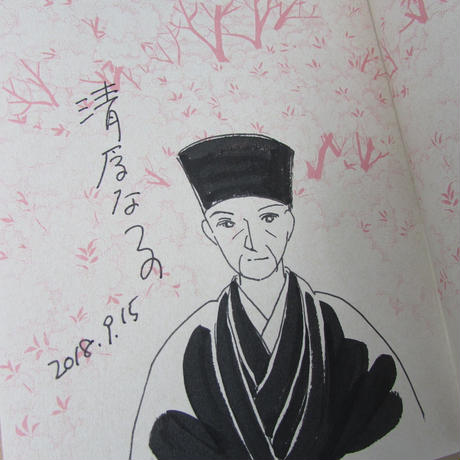 清原なつの
2018.9.15